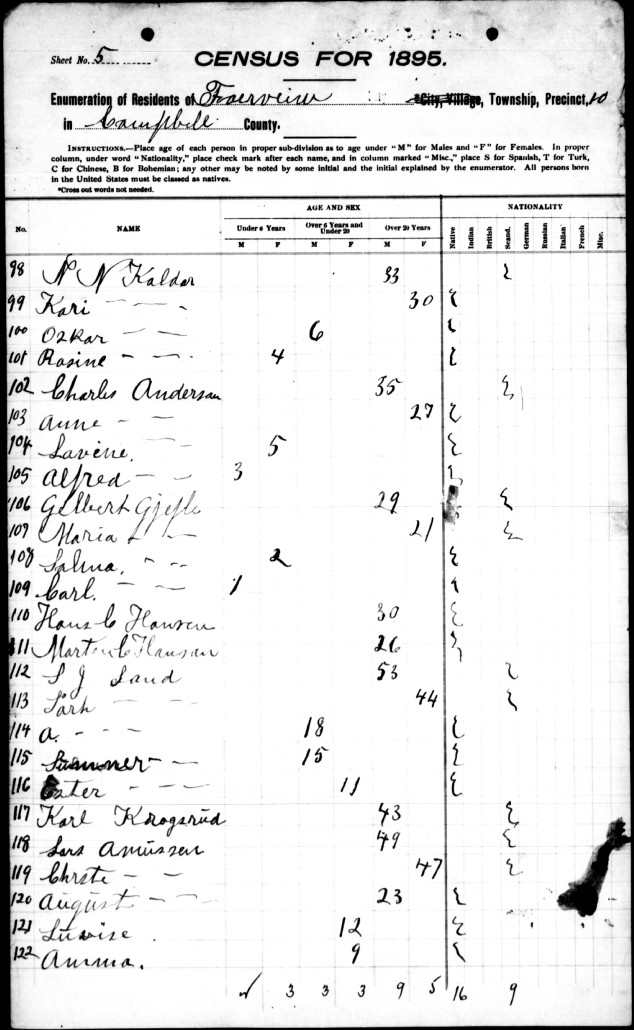 Sheet No. 5
CENSUS FOR 1895.
Enumeration of Residents of City, Village, Township, Precinct, 10
in Campbell County.
INSTRUCTIONS.—Place age of each person in proper sub-division as to age under "M" for Males and "F" for Females. In proper
column, under word "Nationality," place check mark after each name, and in column marked "Misc.," place S for Spanish, T for Turk,
C for Chinese, B for Bohemian; any other may be noted by some initial and the initial explained by the enumerator. All persons born
in the United States must be classed as natives.
*Cross out words not needed.
AGE AND SEX NATIONALITY
No. NAME Under 6 Years Over 6 Years and Under 20 Over 20 Years Native Indian British Scand. German Russian Italian French Misc.
M F M F M F
98 N N Kaldar 33
99 Kari 30
100 Oskar 6
101 Rosine 4
102 Charles Anderson 35
103 Anne 27
104 Lavine. 5
105 Alfred 3
106 Gilbert 29
107 Maria 21
108 Salma. 2
109 Carl. 1
110 Hans C Hansen 30
111 Marten C Hansan 26
112 S J Sand 53
113 44
114 a. 18
115 15
116 Ester 11
117 Karl Krogsrud 43
118 Lars Amussen 49
119 Chrste 47
120 August 23
121 Luvise. 12
122 Amma. 9
3 3 3 9 5 16 9